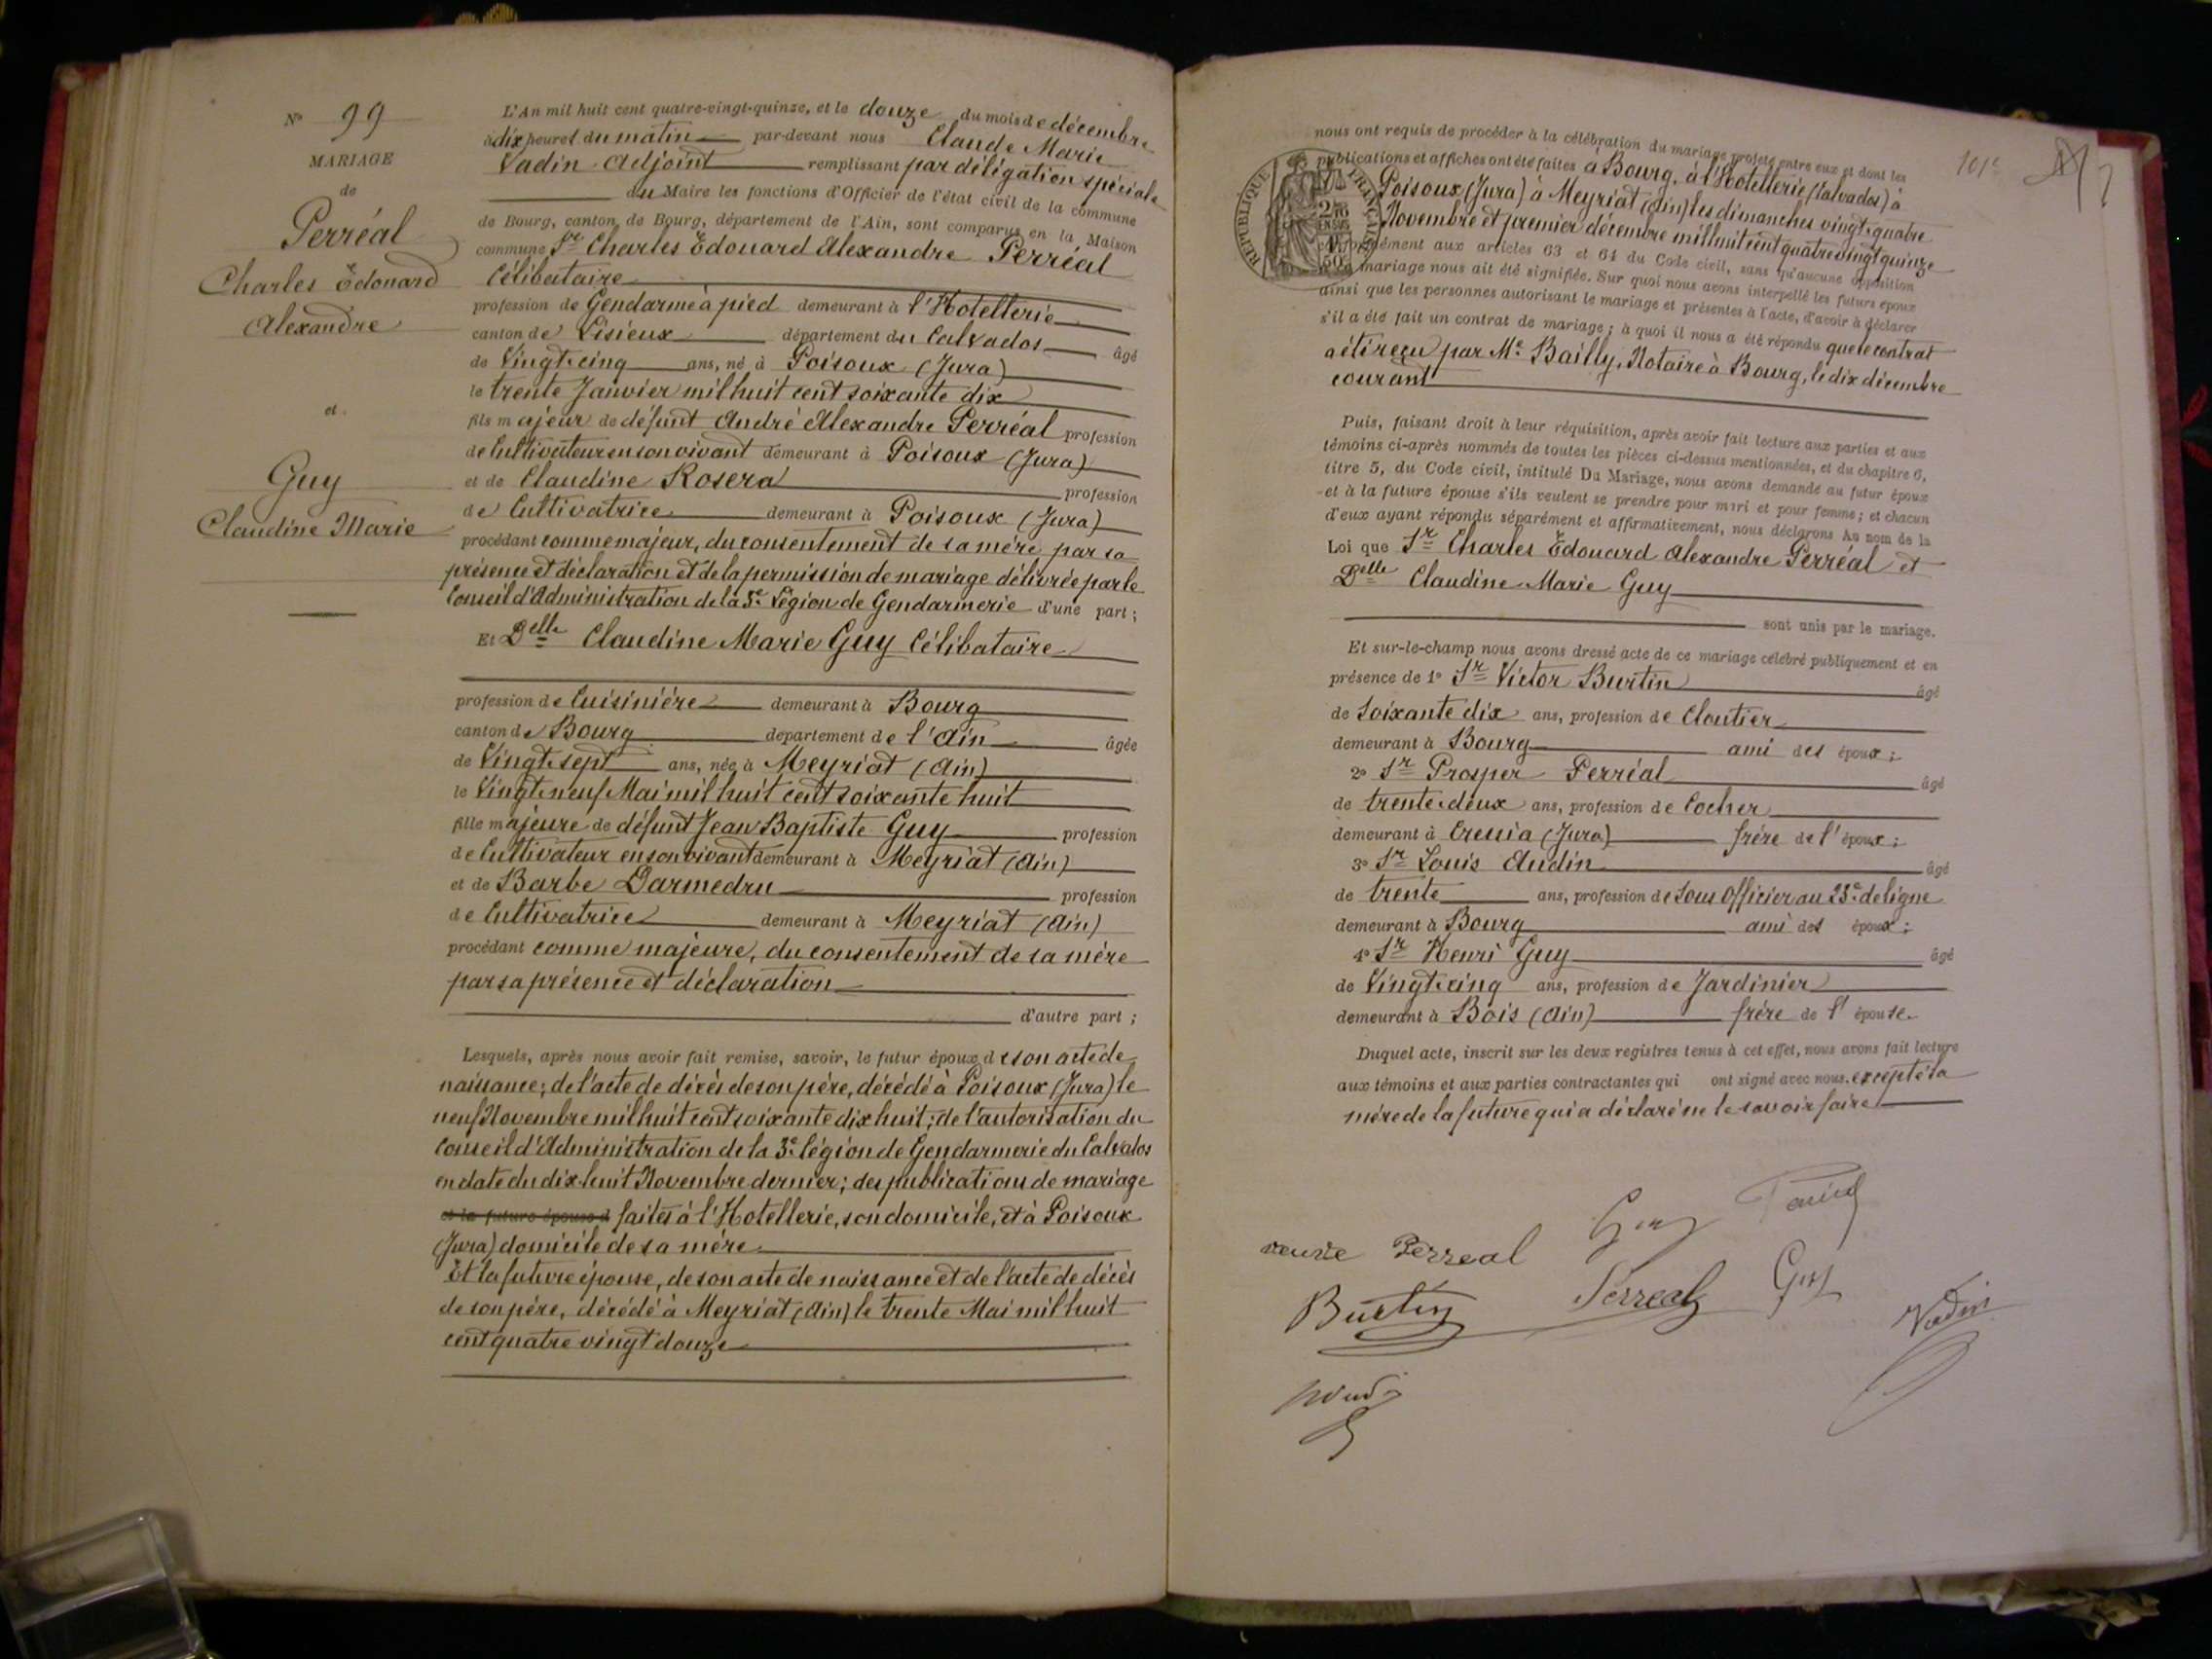 N° 99
MARIAGE
de
Perréal
Charles Edouard
Alexandre
et
Guy
Claudine Marie
L'An mil huit cent quatre-vingt-quinze, et le douze du mois de décembre
à dix heures du matin par-devant nous Claude Marie
Vadin Adjoint remplissant par délégation spéciale
du Maire les fonctions d'Officier de l'état civil de la commune
de Bourg, canton de Bourg, département de l'Ain, sont comparus en la Maison
commune Sr Charles Edouard Alexandre Perréal
Célibataire
profession de Gendarme à pied demeurant à l'Hotellerie
canton de Lisieux département du Calvados âgé
de Vingt-cinq ans, né à Poisoux (Jura)
le trente Janvier mil huit cent soixante dix
fils majeur de défunt André Alexandre Perréal profession
de Cultivateur en son vivant demeurant à Poisoux (Jura)
et de Claudine Rosera profession
de Cultivatrice demeurant à Poisoux (Jura)
procédant comme majeur, du consentement de sa mère par sa
présence et déclaration et de la permission de mariage délivrée par le
Conseil d'Administration de la 3e Légion de Gendarmerie d'une part;
Et Delle Claudine Marie Guy Célibataire
profession de Cuisinière demeurant à Bourg
canton de Bourg département de l'Ain âgée
de Vingt-sept ans, née à Meyriat (Ain)
le Vingt-neuf Mai mil huit cent soixante huit
fille majeure de défunt Jean Baptiste Guy profession
de Cultivateur en son vivant demeurant à Meyriat (Ain)
et de Barbe Darmedru profession
de Cultivatrice demeurant à Meyriat (Ain)
procédant comme majeure, du consentement de sa mère
par sa présence et déclaration
d'autre part;
Lesquels, après nous avoir fait remise, savoir, le futur époux de son acte de
naissance; de l'acte de décès de son père, décédé à Poisoux (Jura) le
neuf Novembre mil huit cent soixante dix huit; de l'autorisation du
Conseil d'Administration de la 3e légion de Gendarmerie du Calvados
en date du dix-huit Novembre dernier; des publications de mariage
et la future épouse d faites à l'Hotellerie, son domicile, et à Poisoux
(Jura) domicile de sa mère
Et la future épouse, de son acte de naissance et de l'acte de décès
de son père, décédé à Meyriat (Ain) le trente Mai mil huit
cent quatre vingt douze
101e
nous ont requis de procéder à la célébration du mariage projeté entre eux et dont les
publications et affiches ont été faites à Bourg, à l'Hotellerie (Calvados) à
Poisoux (Jura) à Meyriat (Ain) les dimanches vingt-quatre
Novembre et premier décembre mil huit cent quatre vingt quinze
conformément aux articles 63 et 64 du Code civil, sans qu'aucune opposition
mariage nous ait été signifiée. Sur quoi nous avons interpellé les futurs époux
ainsi que les personnes autorisant le mariage et présentes à l'acte, d'avoir à déclarer
s'il a été fait un contrat de mariage; à quoi il nous a été répondu que le contrat
a été reçu par Me Bailly, Notaire à Bourg, le dix décembre
courant
RÉPUBLIQUE FRANÇAISE
Puis, faisant droit à leur réquisition, après avoir fait lecture aux parties et aux
témoins ci-après nommés de toutes les pièces ci-dessus mentionnées, et du chapitre 6,
titre 5, du Code civil, intitulé Du Mariage, nous avons demandé au futur époux
et à la future épouse s'ils veulent se prendre pour mari et pour femme; et chacun
d'eux ayant répondu séparément et affirmativement, nous déclarons Au nom de la
Loi que Sr Charles Edouard Alexandre Perréal et
Delle Claudine Marie Guy
sont unis par le mariage.
Et sur-le-champ nous avons dressé acte de ce mariage célébré publiquement et en
présence de 1° Sr Victor Burtin âgé
de Soixante dix ans, profession de Cloutier
demeurant à Bourg ami des époux;
2° Sr Prosper Perréal âgé
de trente-deux ans, profession de Cocher
demeurant à Cressia (Jura) frère de l'époux;
3° Sr Louis Audin âgé
de trente ans, profession de Sous Officier au 23e de ligne
demeurant à Bourg ami des époux;
4° Sr Henri Guy âgé
de Vingt-cinq ans, profession de Jardinier
demeurant à Bois (Ain) frère de l'épouse.
Duquel acte, inscrit sur les deux registres tenus à cet effet, nous avons fait lecture
aux témoins et aux parties contractantes qui ont signé avec nous, excepté la
mère de la future qui a déclaré ne le savoir faire
Guy
veuve Perreal
Burtin Perreal Guy
Vadin